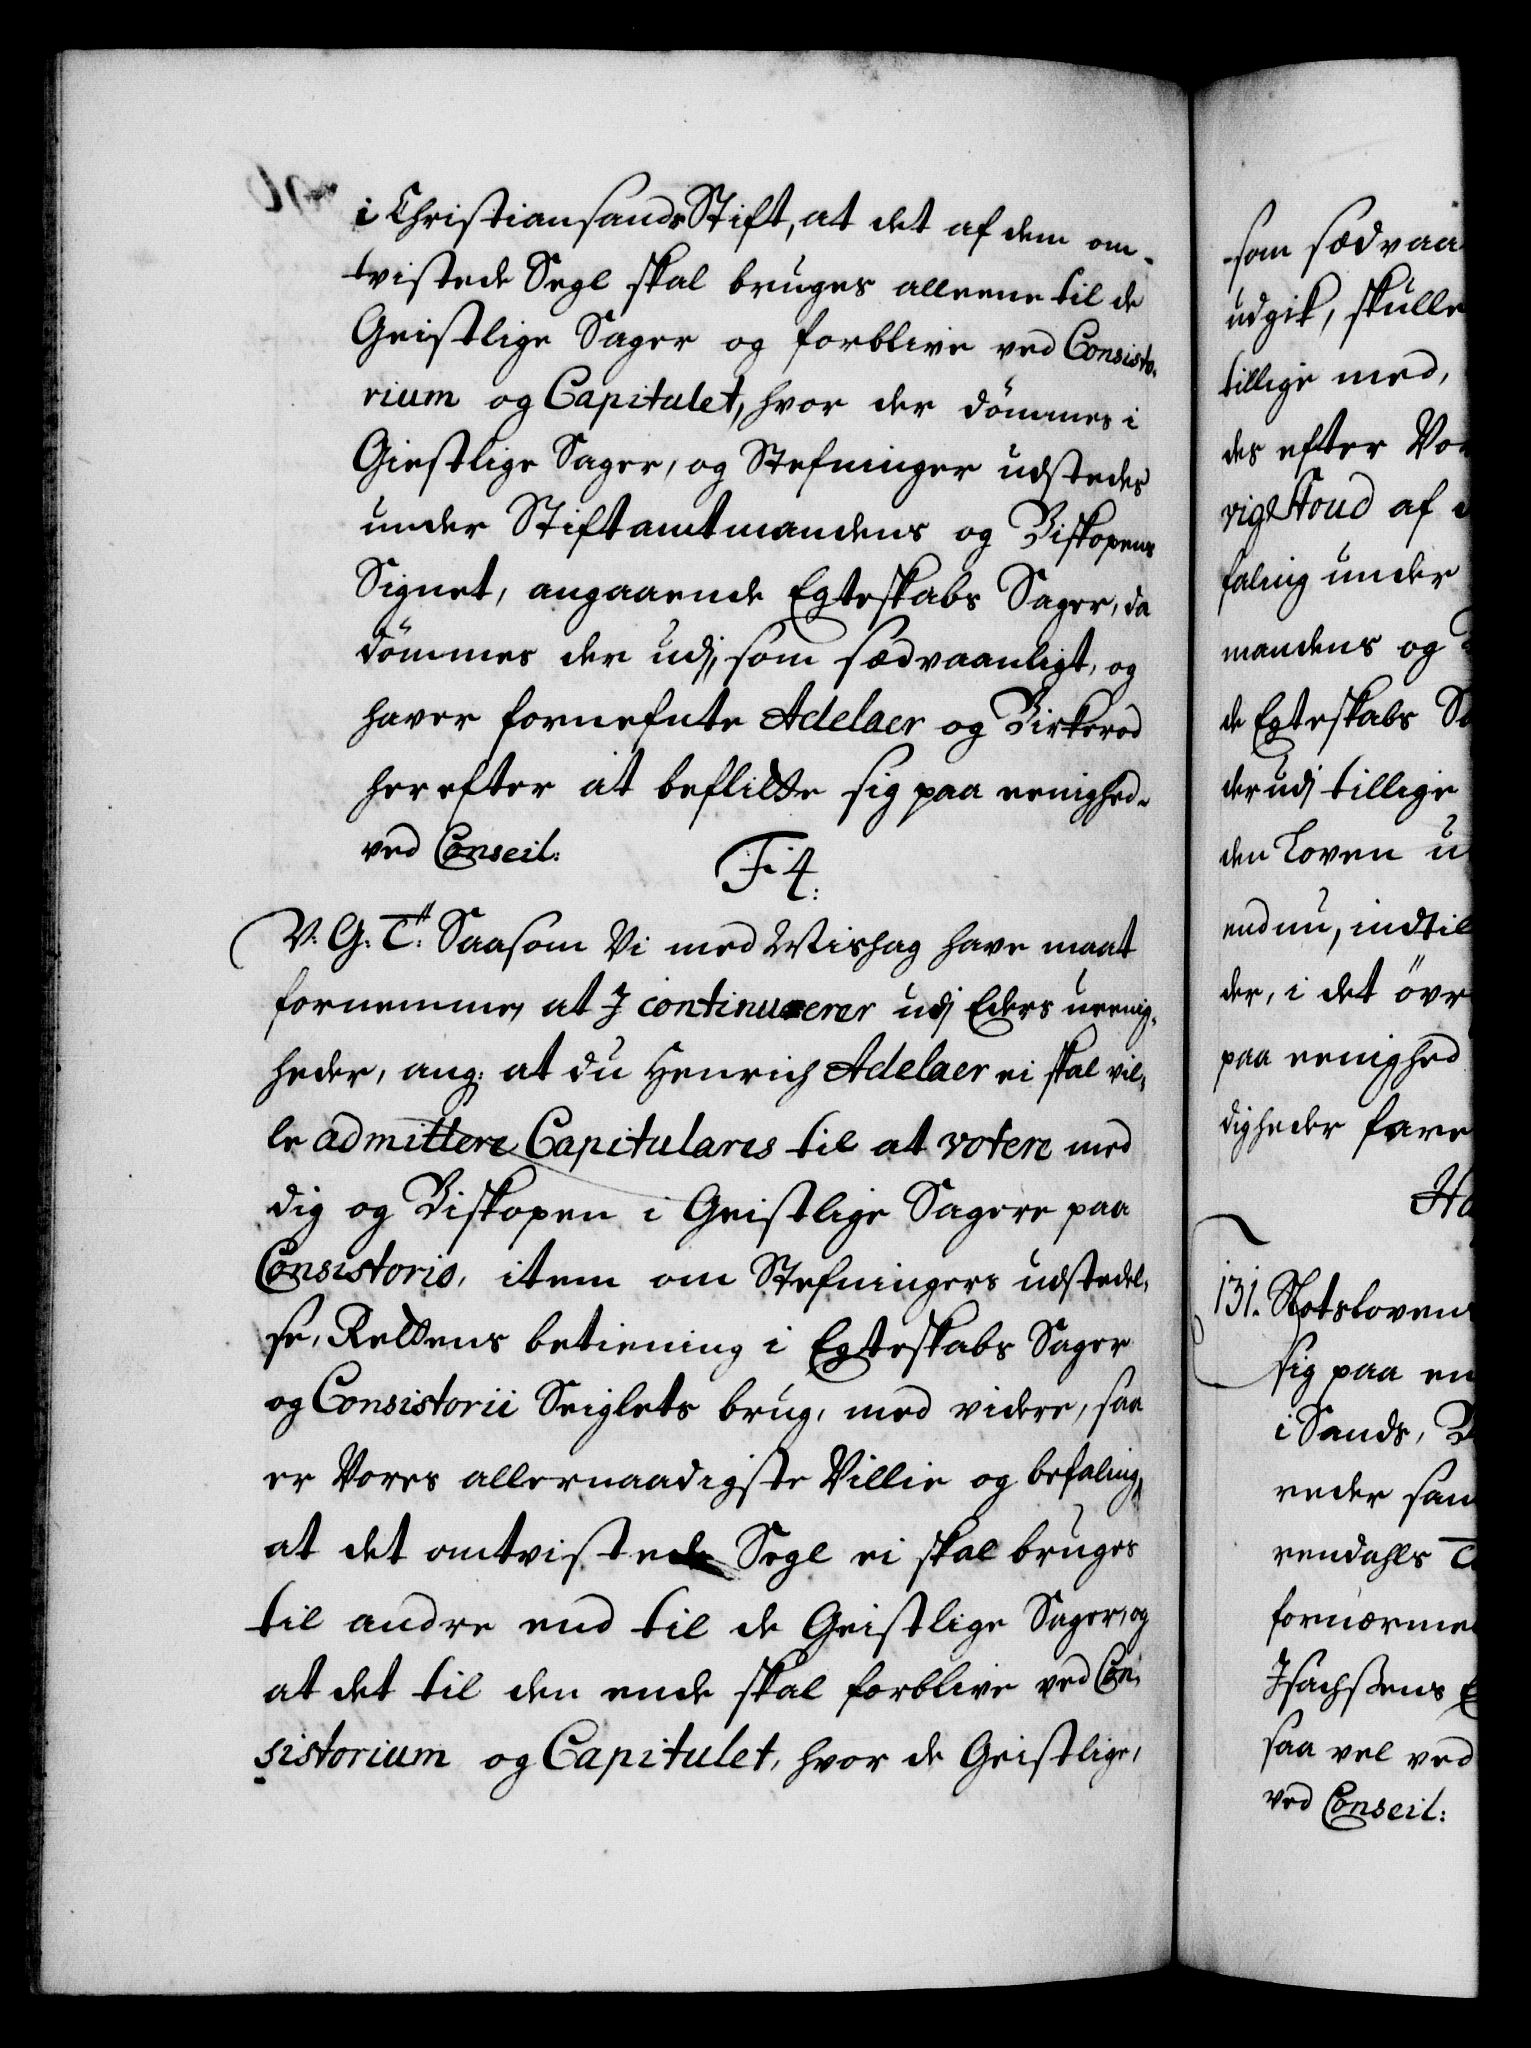 i Christiansands Stift, at det af dem om-
tvistede Segl skal bruges alleene til de
Geistlige Sager og forblive ved Consisto-
rium og Capitulet, hvor der dömmes i
Giestlige Sager, og Stefninger udstedes
under Stiftamtmandens og Biskopens
Signet, angaaende Egteskabs Sager, da
dömmes der udj, som sædvaanligt, og
haver fornefnte Adelaer og Birkerod
herefter at beflitte sig paa eenighed.
ved Conseil:
F. 4.
V: G: T: Saasom Vi med Mishag have maat
fornemme, at I continuerer udj Eders ueenig-
heder, ang: at du Henrich Adelaer ei skal vil-
le admittere Capitulares til at votere med
dig og Biskopen i Geistlige Sagere paa
Consistorio, item om Stefningers udstedel-
se, Rettens betiening i Egteskabs Sager
og Consistorii Seiglets brug, med videre, saa
er Vores allernaadigste Villie og befaling,
at det omtvistede Segl ei skal bruges
til andre end til de Geistlige Sager, og
at det til den ende skal forblive ved Con-
sistorium og Capitulet, hvor de Geistlige,
som sædvaa
udgik, skulle
tillige med,
des efter Vo
vigl. Foud af
faling under
mandens og
de Egteskabs S
der udj tillige
den Loven u
endnu, indtil
der, i det övr
paa eenighed
digheder fare
Ha
131. Slotsloven
sig paa en
i Sands, B
reder sam
rendahls T
fornærme
Isachssens
saa vel ved
ved Conseil: